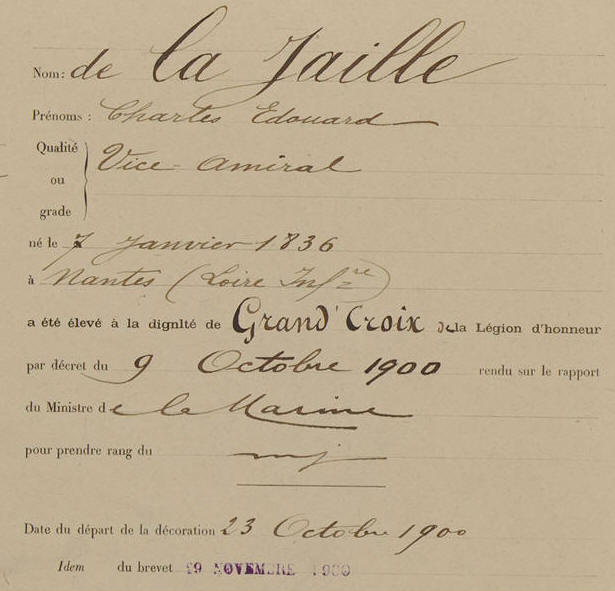 Nom: de la Jaille
Prénoms: Charles Edouard
Qualité ou grade Vice-Amiral
né le 7 Janvier 1836
à Nantes (Loire Infre)
a été élevé à la dignité de Grand'Croix de la Légion d'honneur
par décret du 9 Octobre 1900 rendu sur le rapport
du Ministre de la Marine
pour prendre rang du mj
Date du départ de la décoration 23 Octobre 1900
Idem du brevet 29 NOVEMBRE 1900